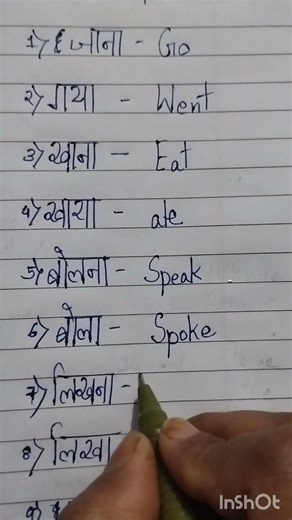 1) जाना - Go
2) गया - Went
3) खाना - Eat
4) खाया - ate
5) बोलना - Speak
6) बोला - Spoke
7) लिखना -
8) लिखा
InShOt